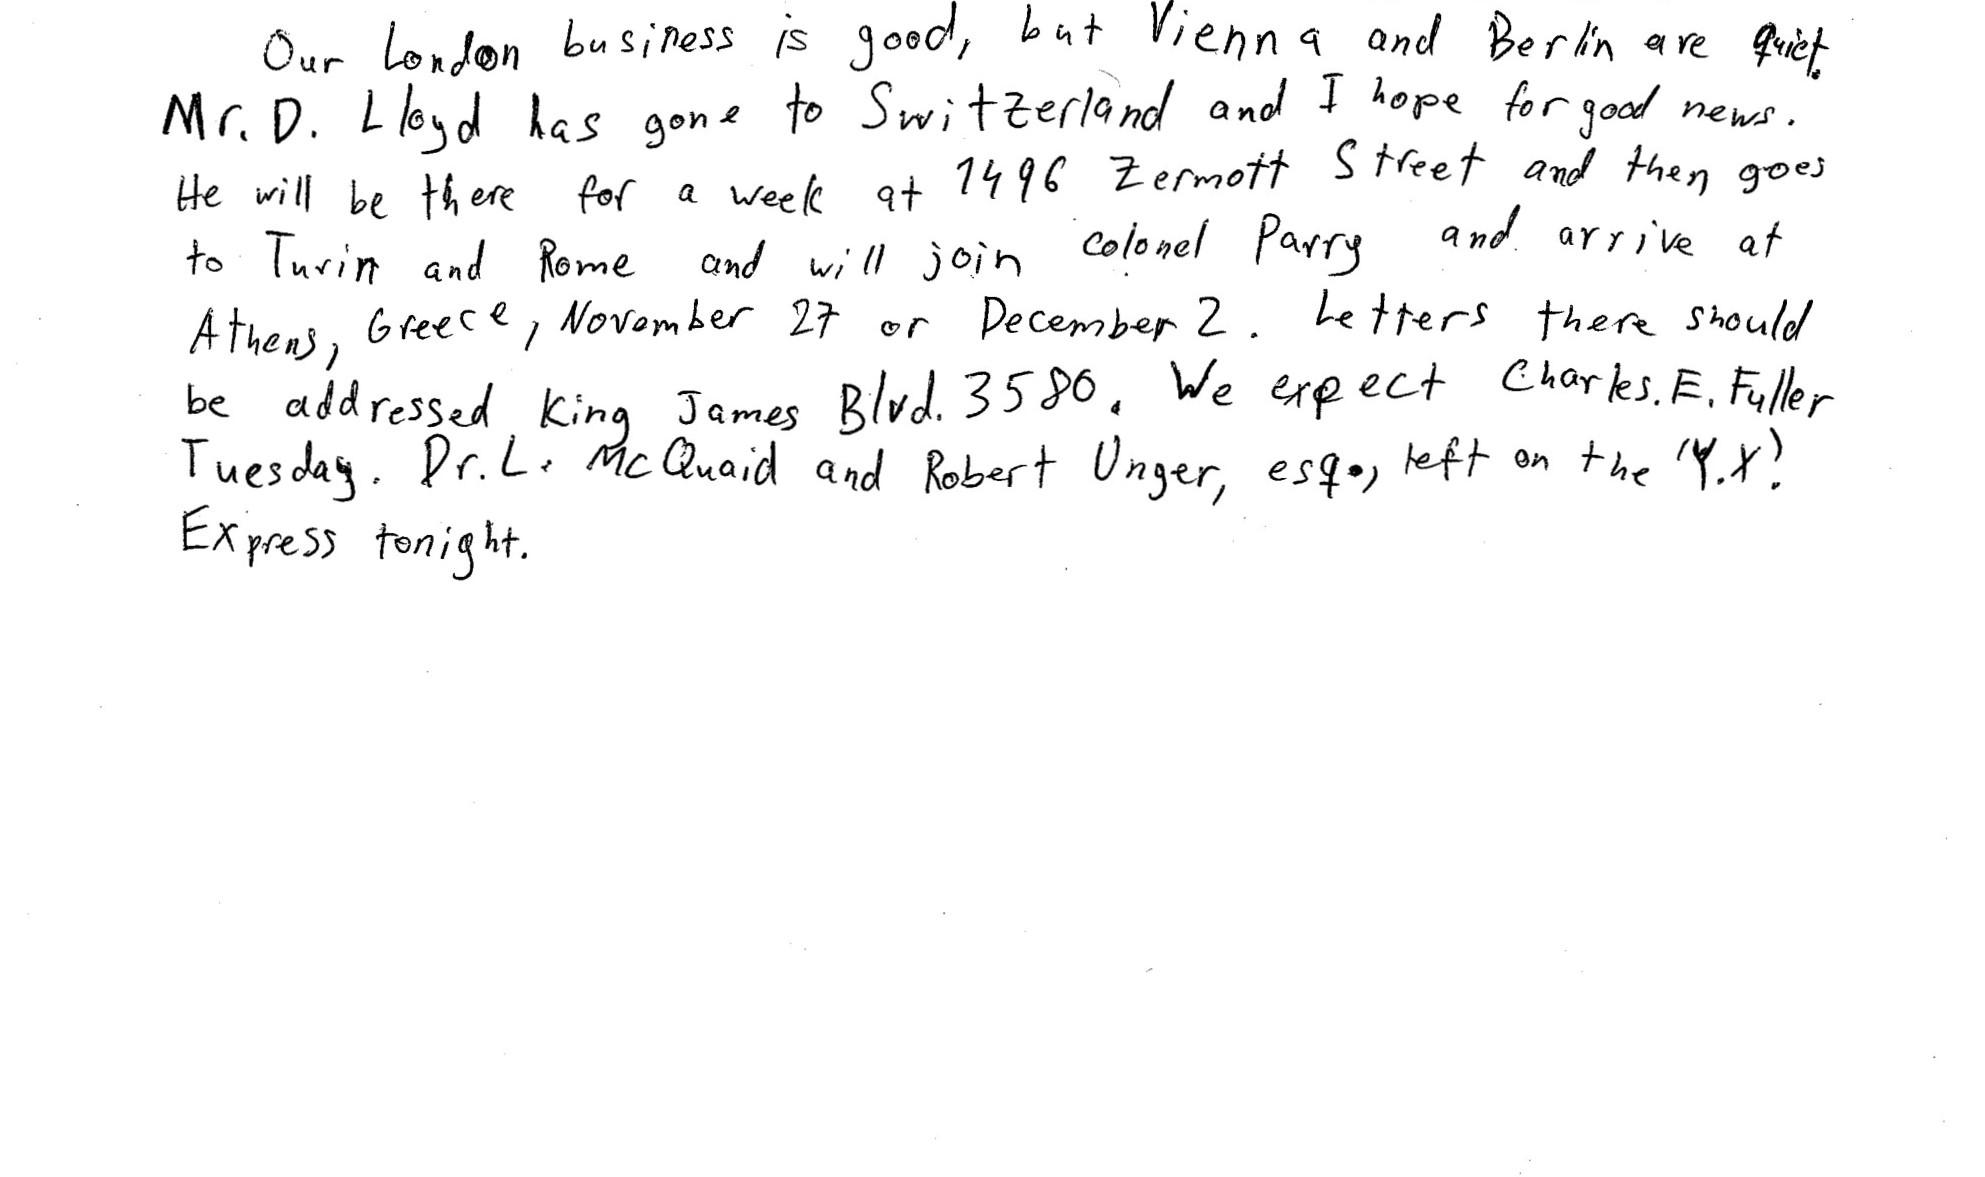 Our London business is good, but Vienna and Berlin are quiet.
Mr. D. Lloyd has gone to Switzerland and I hope for good news.
He will be there for a week at 1496 Zermott Street and then goes
to Turin and Rome and will join colonel Parry and arrive at
Athens, Greece, November 27 or December 2. Letters there should
be addressed King James Blvd. 3580. We expect Charles. E. Fuller
Tuesday. Dr. L. McQuaid and Robert Unger, esq., left on the "Y.X."
Express tonight.